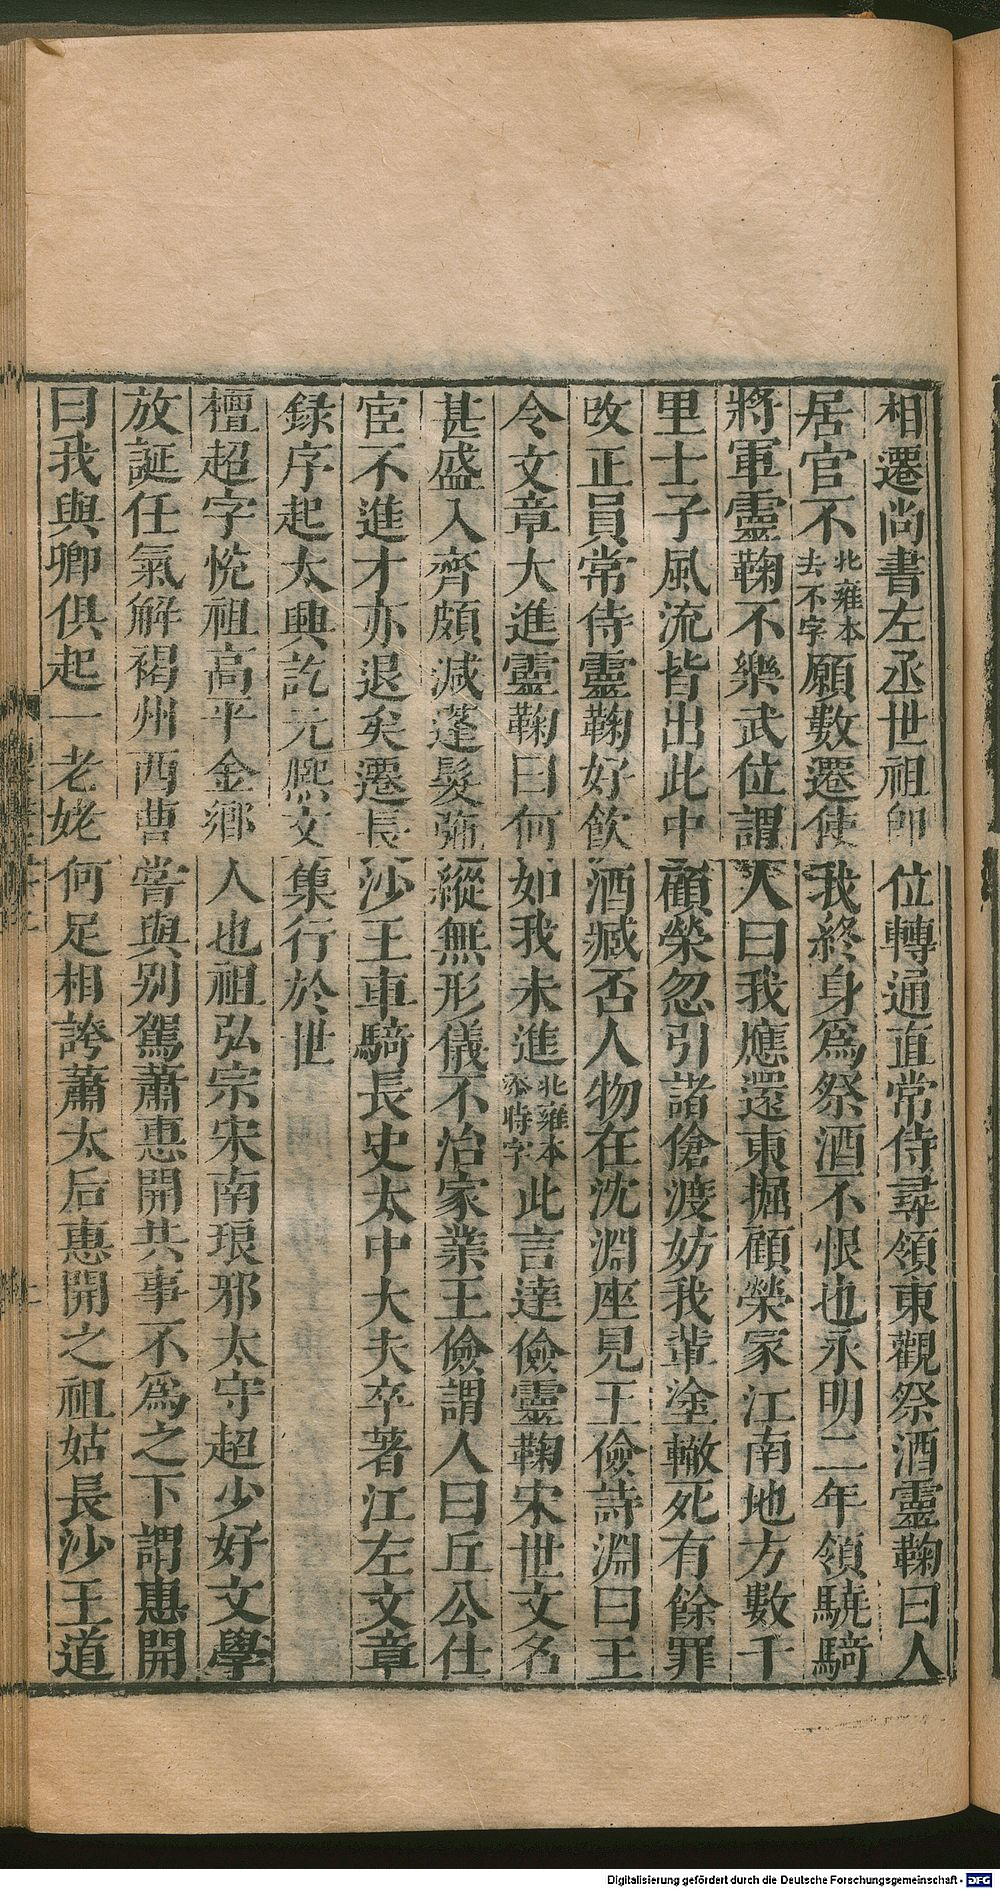 相遷尚書左丞世祖即位轉通直常侍尋領東觀祭酒靈鞠曰人
居官不北雍本去不字願數遷使我終身爲祭酒不恨也永明二年領驍騎
將軍靈鞠不樂武位謂人曰我應還東掘顧榮冢江南地方數千
里士子風流皆出此中顧榮忽引諸傖渡妨我輩塗轍死有餘罪
改正員常侍靈鞠好飲酒臧否人物在沈淵座見王儉詩淵曰王
令文章大進靈鞠曰何如我未進北雍本添時字此言達儉靈鞠宋世文名
甚盛入齊頗減蓬髮弛縱無形儀不治家業王儉謂人曰丘公仕
宦不進才亦退矣遷長沙王車騎長史太中大夫卒著江左文章
録序起太興訖元熙文集行於世
檀超字悅祖高平金鄉人也祖弘宗宋南琅邪太守超少好文學
放誕任氣解褐州西曹嘗與别駕蕭惠開共事不爲之下謂惠開
曰我與卿俱起一老姥何足相誇蕭太后惠開之祖姑長沙王道
Digitalisierung gefördert durch die Deutsche Forschungsgemeinschaft - DFG